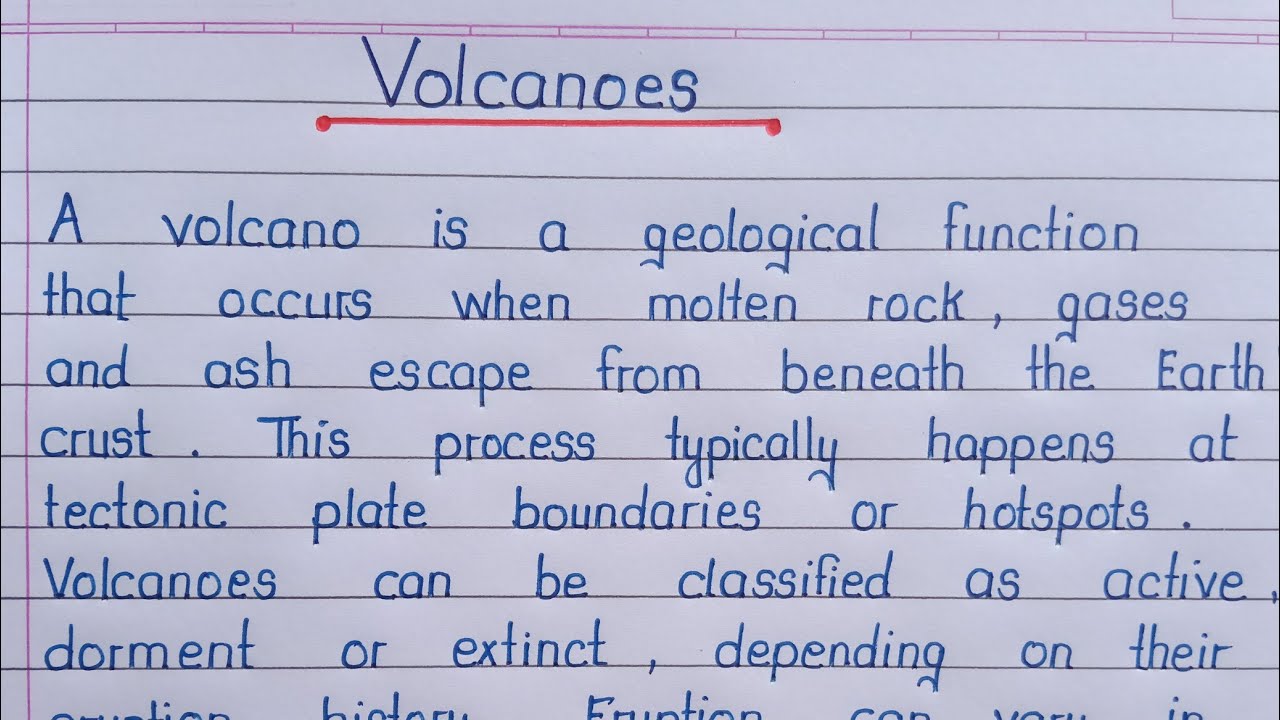 Volcanoes
A volcano is a geological function
that occurs when molten rock, gases
and ash escape from beneath the Earth
crust. This process typically happens at
tectonic plate boundaries or hotspots.
Volcanoes can be classified as active,
dorment or extinct, depending on their
eruption history. Eruption can vary in